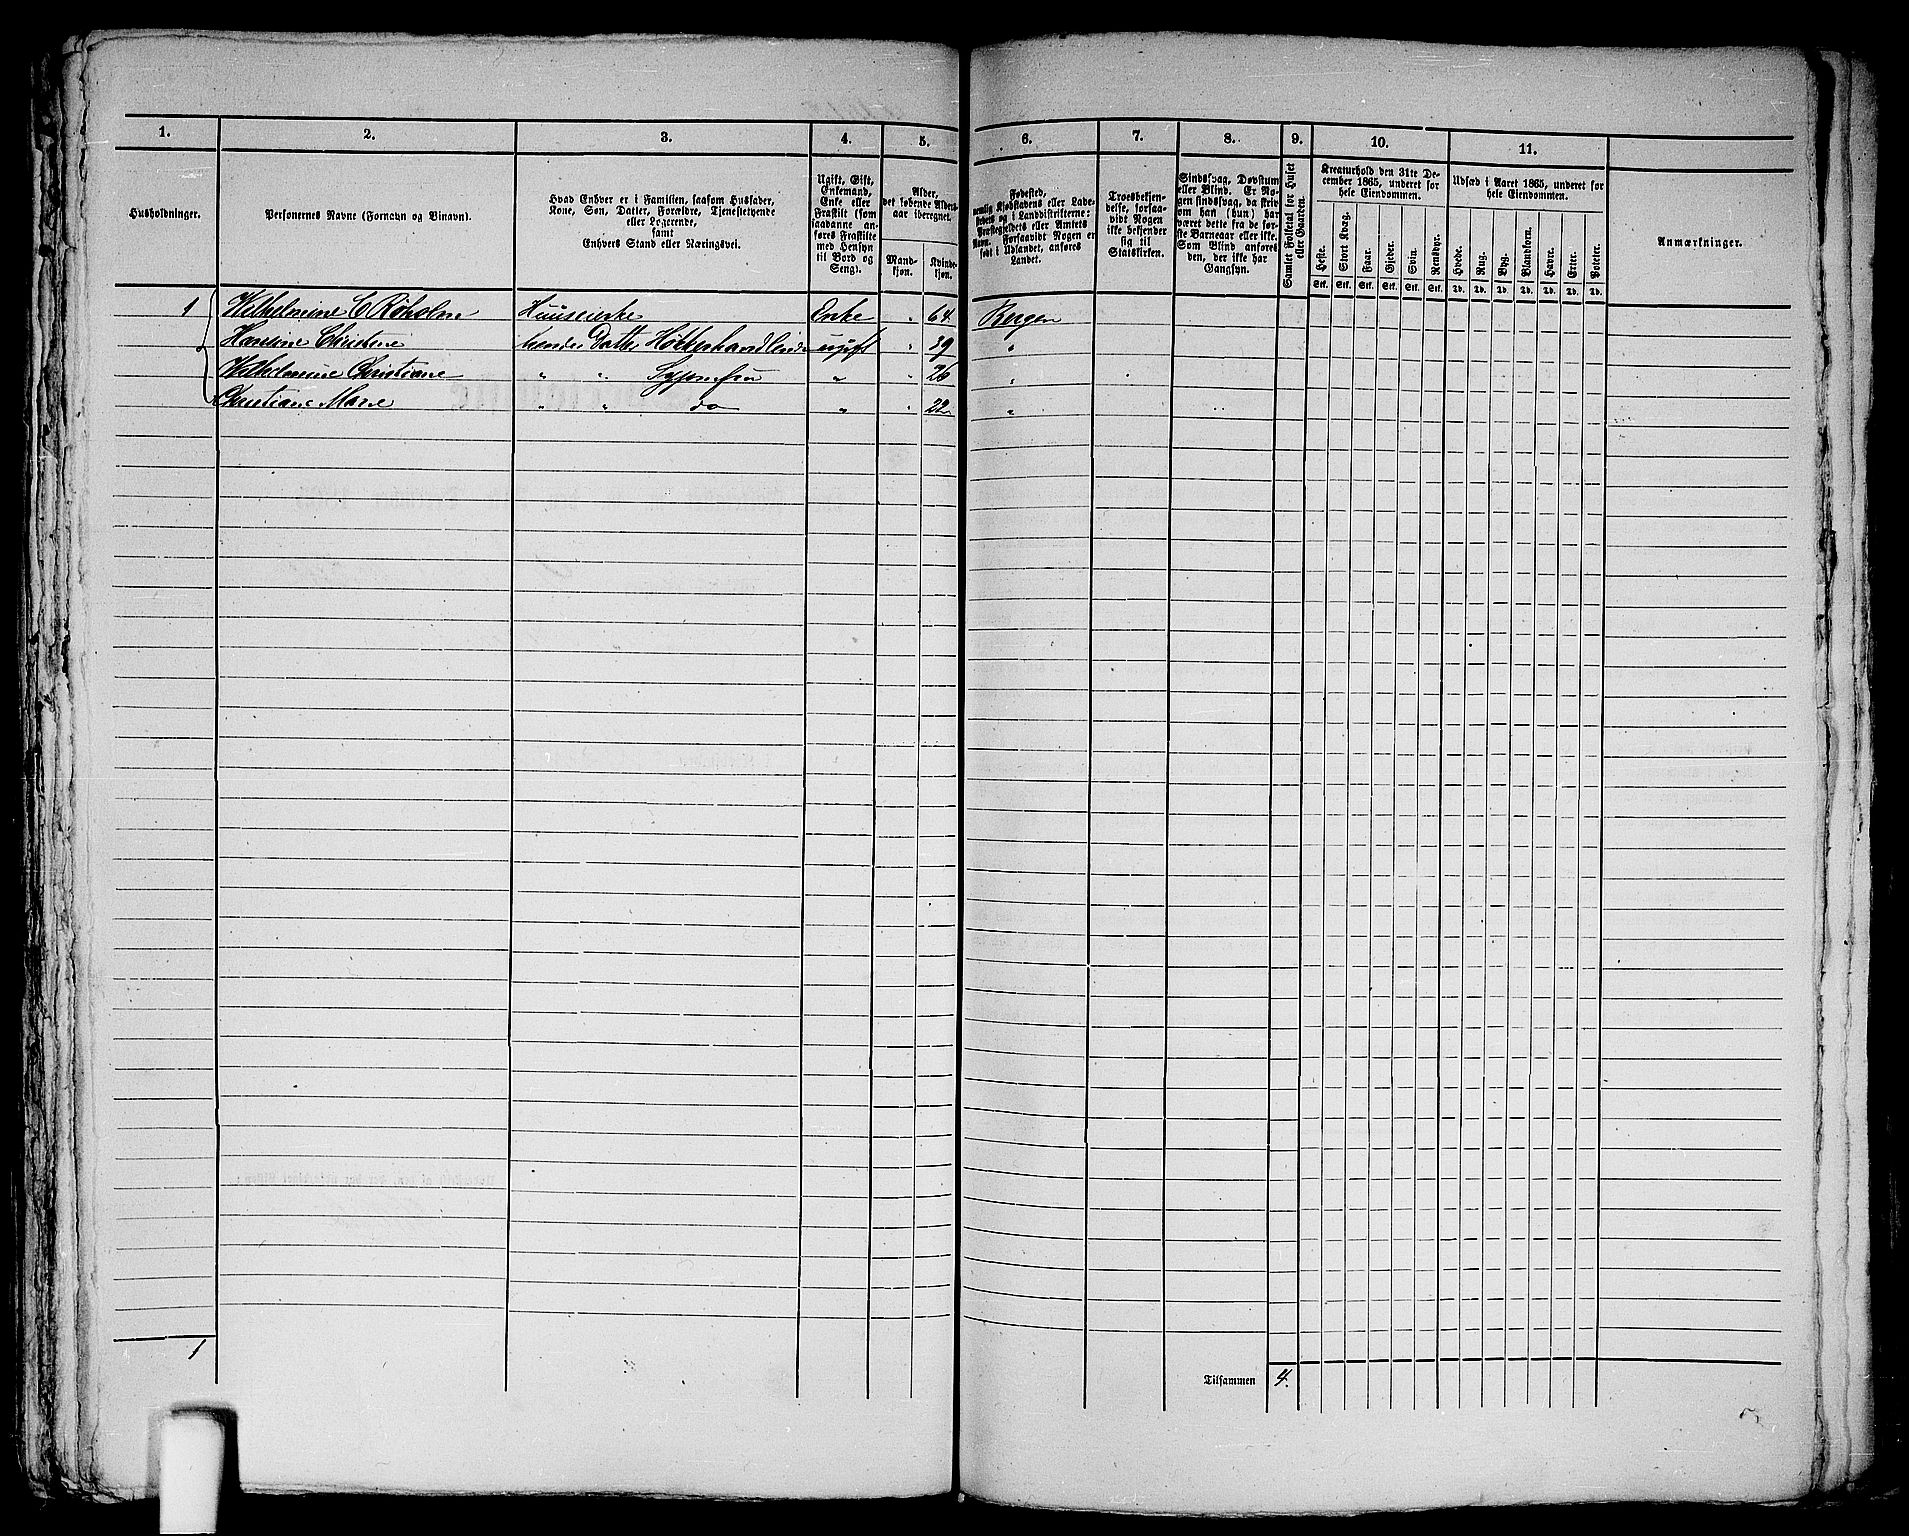 1. 2. 3. 4. 5. 6. 7. 8. 9. 10. 11.
Husholdninger.
Personernes Navne (Fornavn og Binavn).
Hvad Enhver er i Familien, saasom Husfader,
Kone, Søn, Datter, Forældre, Tjenestetyende
eller Logerende,
samt
Enhvers Stand eller Næringsvei.
Ugift, Gift,
Enkemand,
Enke eller
Fraskilt (som
saadanne an-
føres Fraskilte
med Hensyn
til Bord og
Seng).
Alder,
det løbende Alders-
aar iberegnet.
Mand-
kjøn.
Kvinde-
kjøn.
Fødested,
nemlig Kjøbstadens eller Lade-
stedets og i Landdistrikterne:
Præstegjeldets eller Amtets
Navn. Forsaavidt Nogen er
født i Udlandet, anføres
Landet.
Troesbekjen-
delse, forsaa-
vidt Nogen
ikke bekjender
sig til
Statskirken.
Sindssvag, Døvstum
eller Blind. Er No-
gen sindssvag, da skriv
om han (hun) har
været dette fra de før-
ste Barneaar eller ikke.
Som Blind anføres
den, der ikke har
Gangsyn.
Samlet Folketal for Huset
eller Gaarden.
Kreaturhold den 31te De-
cember 1865, underet for
hele Eiendommen.
Heste. Stort Kvæg. Faar. Gjeder. Sviin. Rensdyr.
Stk. Stk. Stk. Stk. Stk. Stk.
Udsæd i Aaret 1865, underet for
hele Eiendommen.
Hvede. Rug. Byg. Blandkorn. Havre. Erter. Poteter.
Td. Td. Td. Td. Td. Td. Td.
Anmærkninger.
1 Wilhelmine C Røholm Huuseierske Enke " 64 Bergen
Christine hendes Datter Høkerhandlerinde ugift " 39 "
Wilhelmine Christiane " " Syjomfru " " 26 "
Christiane Marie " " do " " 22 "
1
Tilsammen 4.